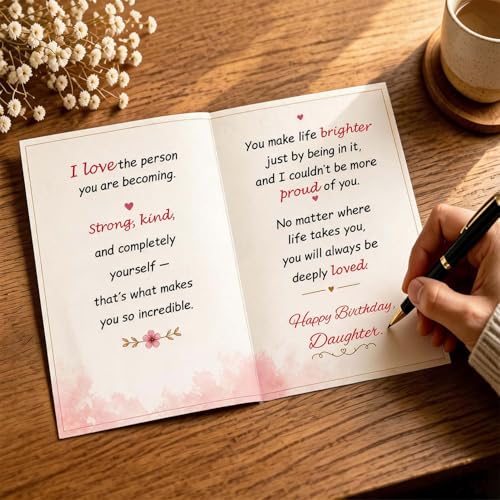 I love the person
you are becoming.
Strong, kind,
and completely
yourself —
that's what makes
you so incredible.
You make life brighter
just by being in it,
and I couldn't be more
proud of you.
No matter where
life takes you,
you will always be
deeply loved.
Happy Birthday,
Daughter.